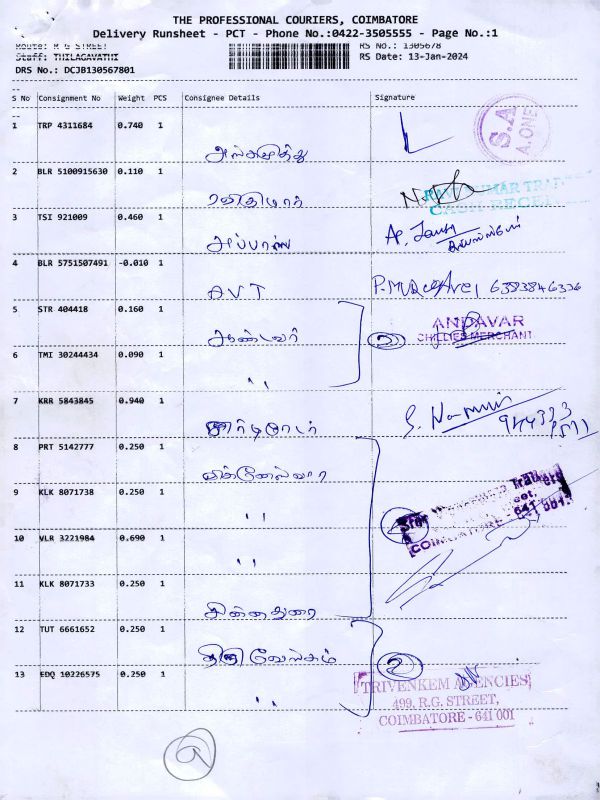 THE PROFESSIONAL COURIERS, COIMBATORE
Delivery Runsheet - PCT - Phone No.:0422-3505555 - Page No.:1
Route: R G STREET RS No.: 1305678
Staff: THILAGAVATHI RS Date: 13-Jan-2024
DRS No.: DCJB130567801
S No Consignment No Weight PCS Consignee Details Signature
1 TRP 4311684 0.740 1
S.A
A.ONE
2 BLR 5100915630 0.110 1
3 TSI 921009 0.460 1
அப்பாஸ்
4 BLR 5751507491 -0.010 1
AVT 6383846336
5 STR 404418 0.160 1
ஆண்டவர் 2 ANDAVAR
CHILLIES MERCHANT
6 TMI 30244434 0.090 1
"
7 KRR 5843845 0.940 1
8 PRT 5142777 0.250 1
9 KLK 8071738 0.250 1
"
COIMBATORE - 641 001.
10 VLR 3221984 0.690 1
"
11 KLK 8071733 0.250 1
சின்னதுரை
12 TUT 6661652 0.250 1
திரிவேங்கம் 2
13 EDQ 10226575 0.250 1
"
TRIVENKEM AGENCIES
499, R.G. STREET,
COIMBATORE - 641 001
9